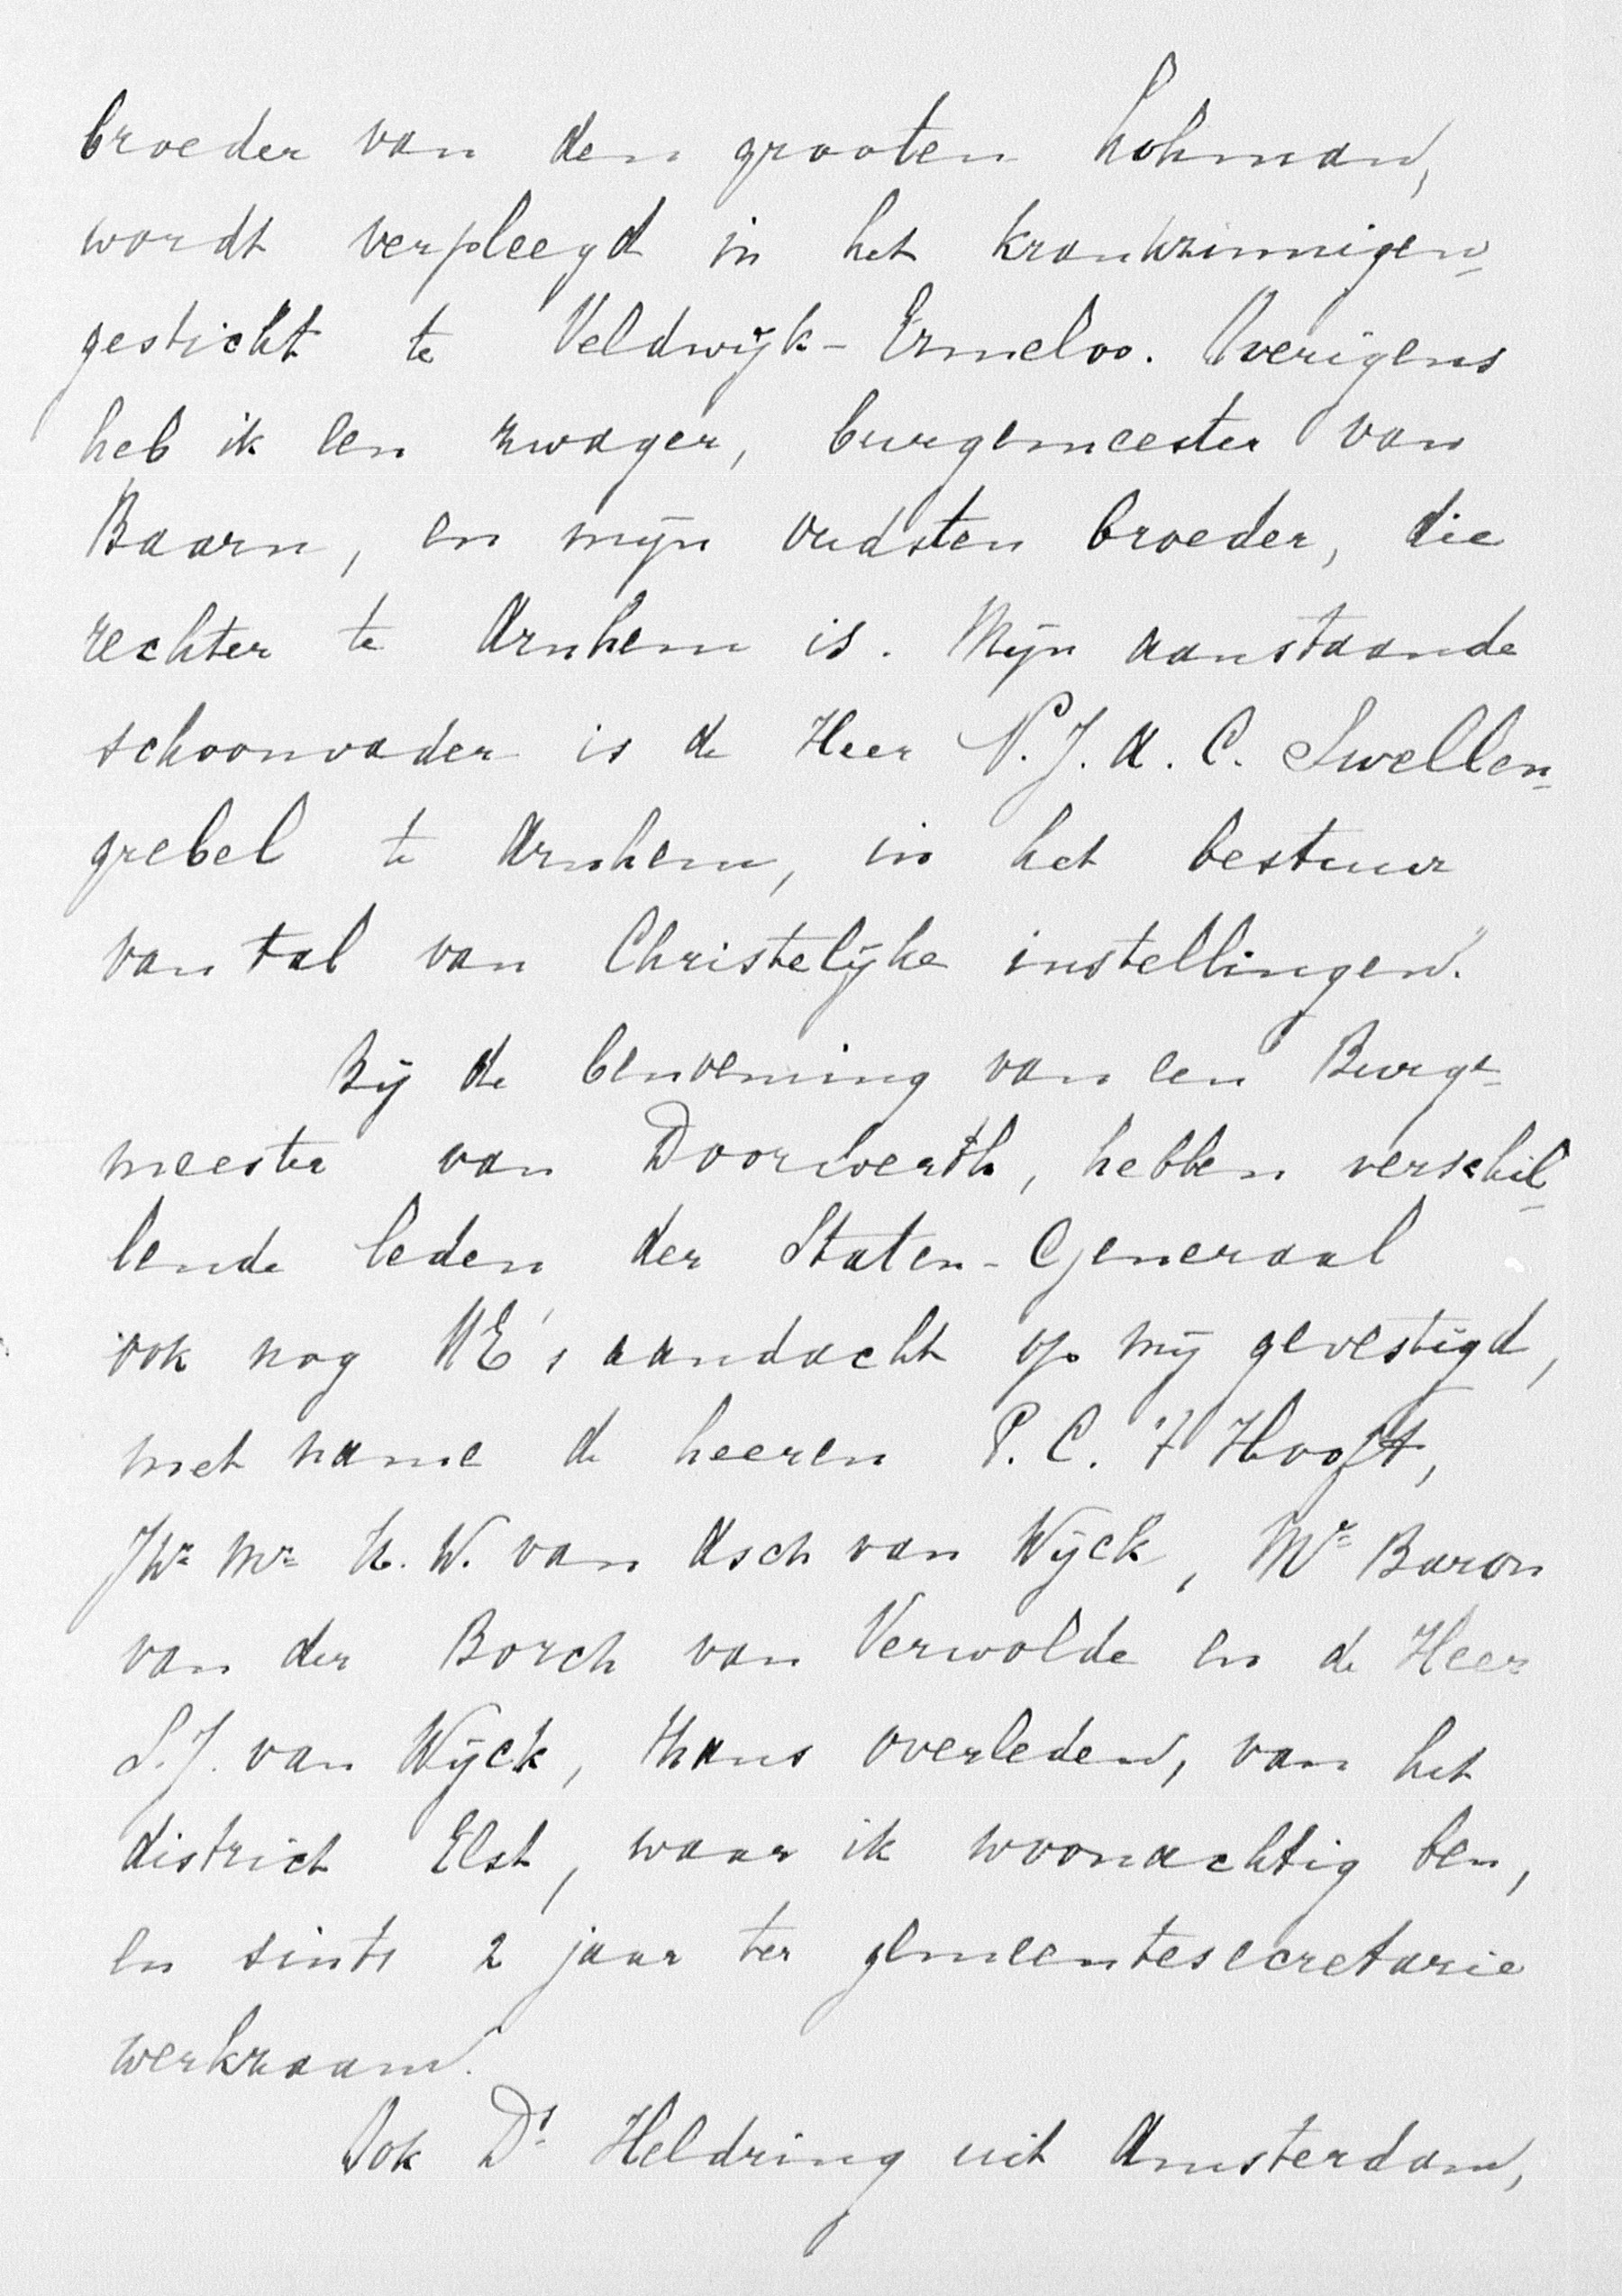 broeder van den grooten Lohman,
wordt verpleegd in het krankzinnigen-
gesticht te Veldwijk-Ermeloo. Overigens
heb ik een zwager, burgemeester van
Baarn, en mijn oudsten broeder, die
rechter te Arnhem is. Mijn aanstaande
schoonvader is de Heer N.J.A.C. Swellen-
grebel te Arnhem, in het bestuur
van tal van Christelijke instellingen.
Bij de benoeming van een Burge-
meester van Doorwerth, hebben verschil-
lende leden der Staten-Generaal
ook nog UE's aandacht op mij gevestigd,
met name de heeren P.C. 't Hooft,
Jhr Mr H.W. van Asch van Wijck, Mr Baron
van der Borch van Verwolde en de Heer
S.J. van Wijck, thans overleden, van het
district Elst, waar ik woonachtig ben,
en sints 2 jaar ter gemeentesecretarie
werkzaam.
Ook Ds Heldring uit Amsterdam,